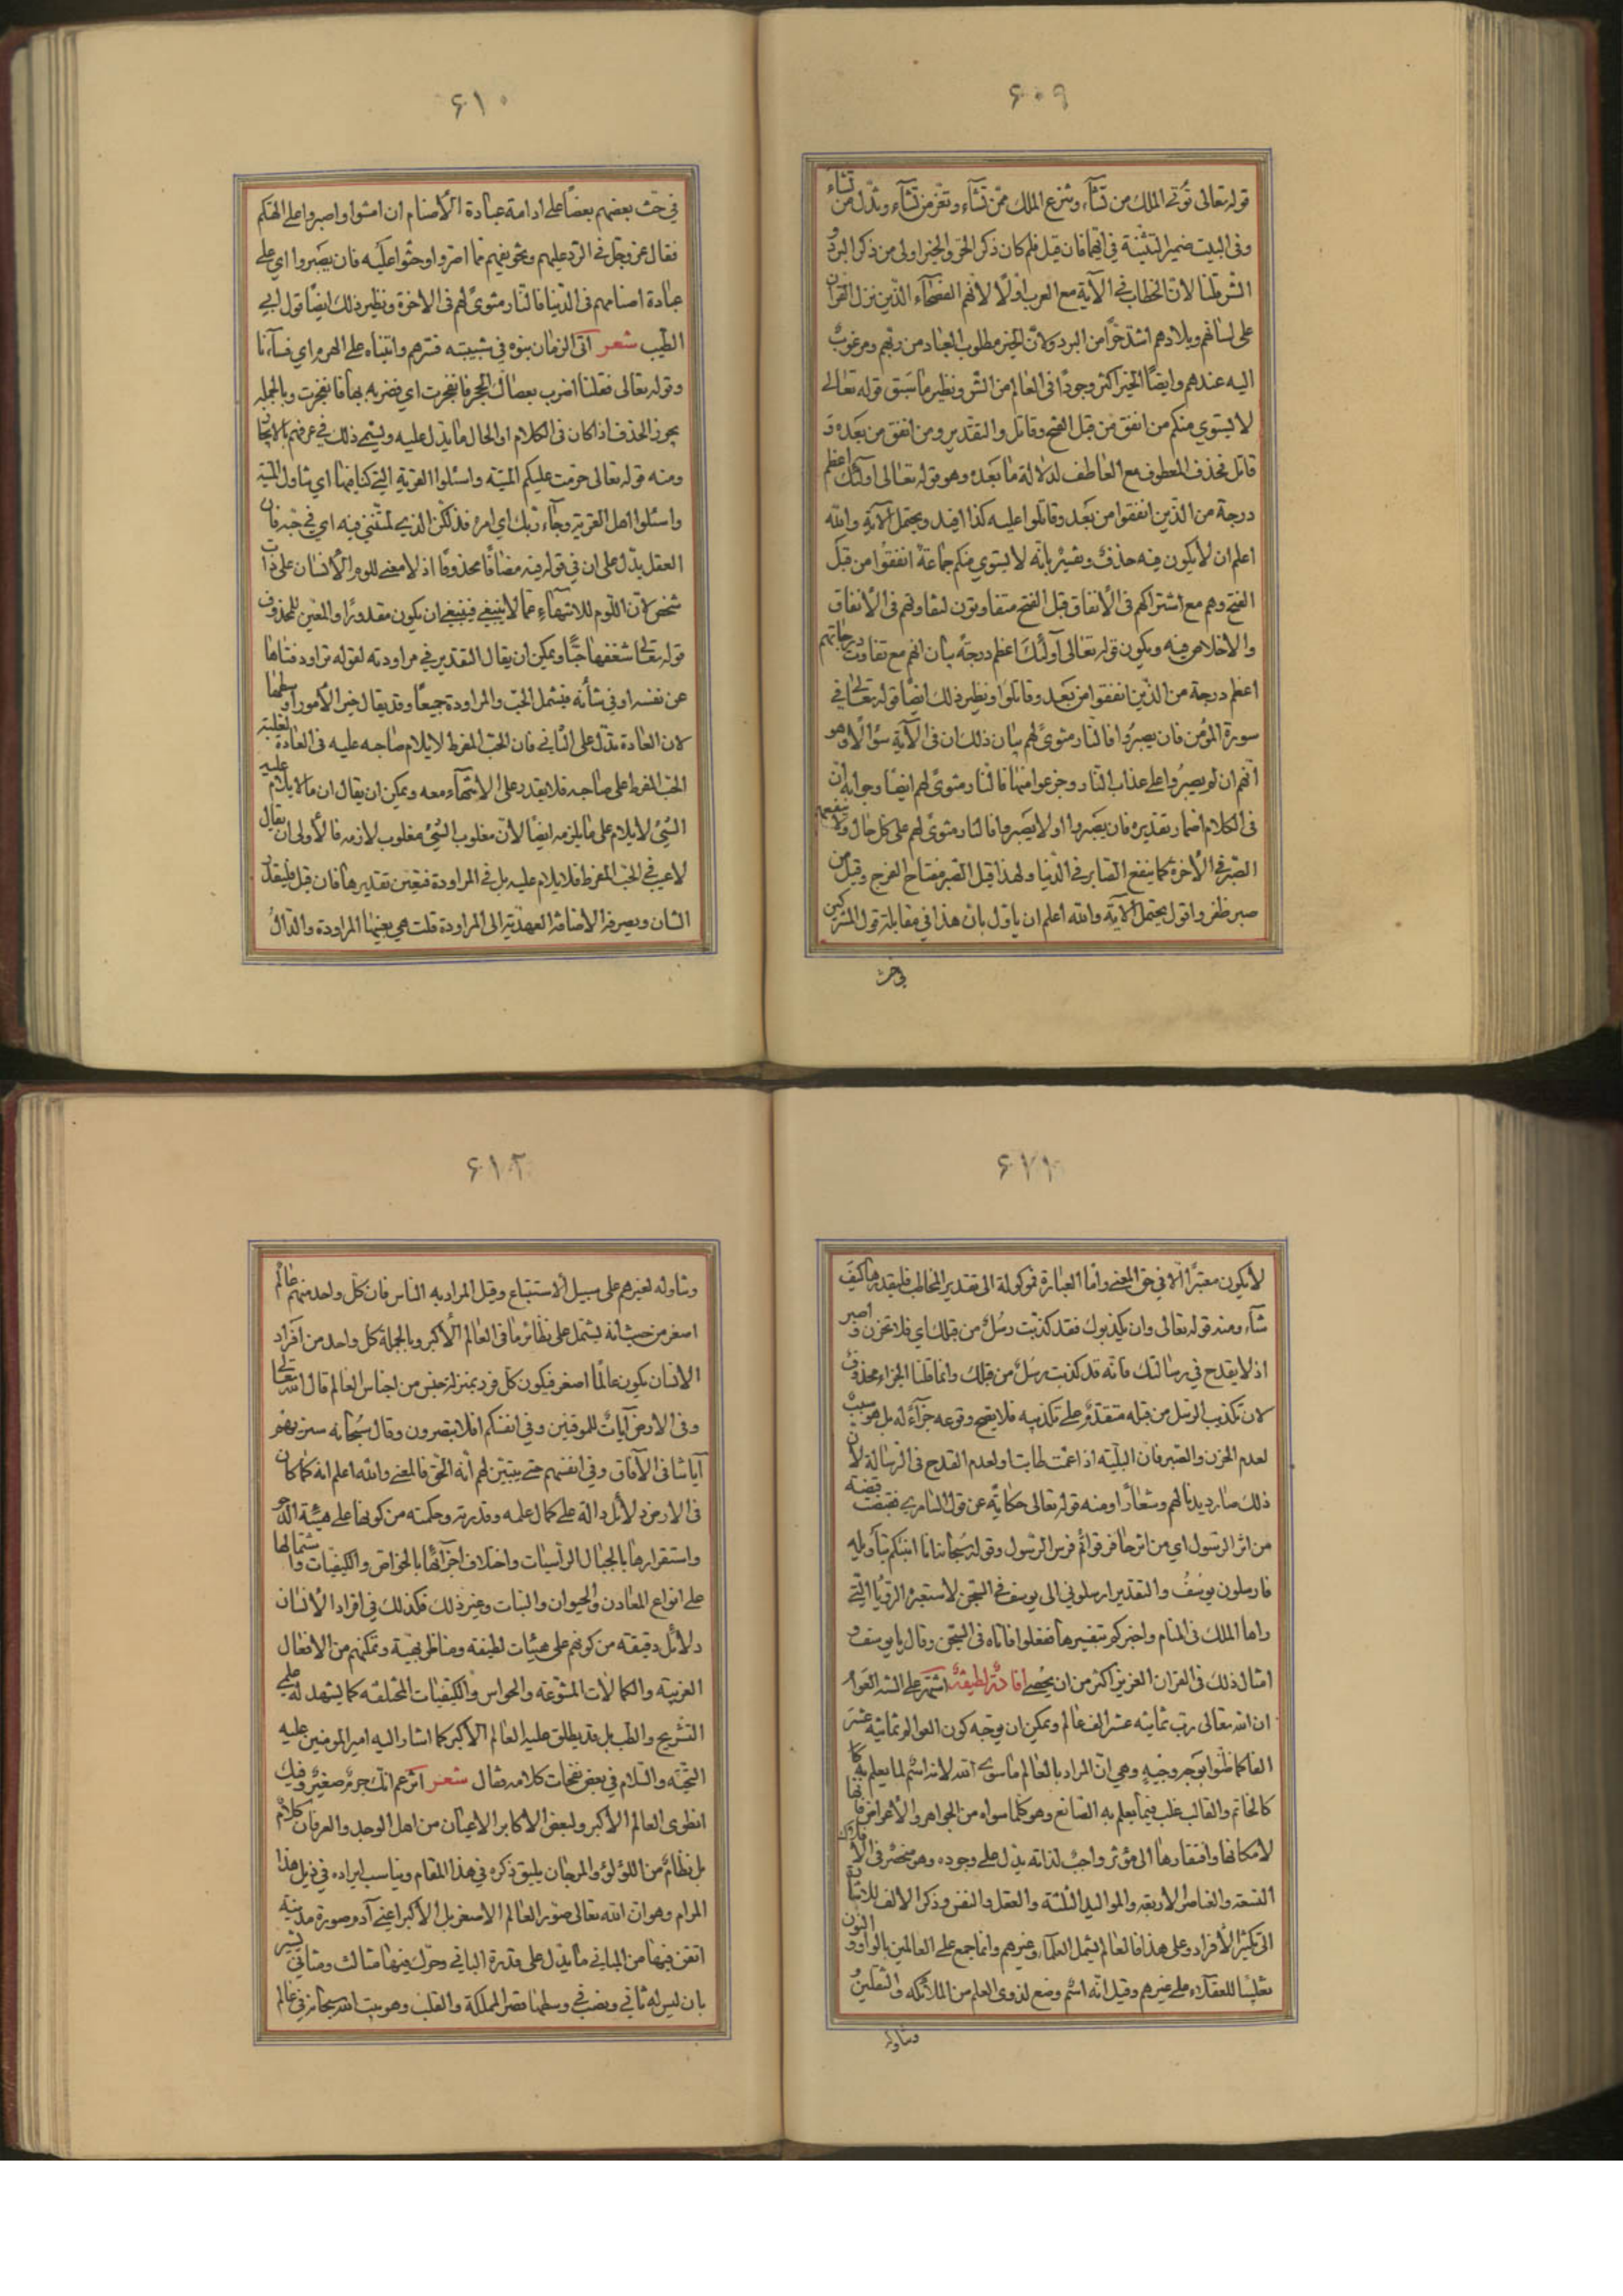 ۶۰۹
قوله تعالى تؤتى الملك من تشآء وتنزع الملك ممن تشآء وتعز من تشآء وتذل من تشآء
وفى البيت ضمير التثنية في ايهما فان قيل فلم كان ذكر الحق والخير اولى من ذكر البرد و
الشر قلنا لان الخطاب في الآية مع العرب اولا لانهم الفصحآء الذين نزل القران
على لسانهم وبلادهم اشد حرا من البرد ولان الخير مطلوب العباد من ربهم ومرغوب
اليه عندهم وايضا الخير اكثر وجودا فى العالم من الشر ونظير ما سبق قوله تعالى
لا يستوي منكم من انفق من قبل الفتح وقاتل والتقدير ومن انفق من بعده و
قاتل فحذف المعطوف مع العاطف لدلالة ما بعده وهو قوله تعالى اولئك اعظم
درجة من الذين انفقوا من بعد وقاتلوا عليه كذا افيد ويحتمل الآية والله
اعلم ان لا يكون فيه حذف وتفسيره بانه لا يستوي منكم جماعة انفقوا من قبل
الفتح وهم مع اشتراكهم فى الأنفاق قبل الفتح متفاوتون لتفاوتهم فى الأنفاق
والاخلاص فيه ويكون قوله تعالى اولئك اعظم درجة بيان انهم مع تفاوت درجاتهم
اعظم درجة من الذين انفقوا من بعد وقاتلوا ونظير ذلك ايضا قوله تعالى في
سورة المؤمن فان يصبروا فالنار مثوى لهم بيان ذلك ان فى الآية سؤالا وهو
انهم ان لم يصبروا على عذاب النار وجزعوا منها فالنار مثوى لهم ايضا وجوابه ان
فى الكلام اضمار تقديره فان يصبروا اولا يصبروا فالنار مثوى لهم على كل حال ولا ينفعهم
الصبر في الأخرة كما ينفع الصابر في الدنيا ولهذا قيل الصبر مفتاح الفرج وقيل من
صبر ظفر واقول يحتمل الآية والله اعلم ان ياول بان هذا في مقابلة قول المشركين
في حث
۶۱۰
في حث بعضهم بعضا على ادامة عبادة الأصنام ان امشوا واصبروا على الهتكم
فقال عز وجل في الرد عليهم وتخويفهم مما اصروا وحثوا عليه فان يصبروا اي على
عبادة اصنامهم فى الدنيا فالنار مثوى لهم فى الاخرة ونظير ذلك ايضا قول ابي
الطيب شعر اتى الزمان بنوه في شبيبته فسرهم واتيناه على الهرم اي فسآءنا
وقوله تعالى فقلنا اضرب بعصاك الحجر فانفجرت اي فضربه بها فانفجرت وبالجمله
يجوز الحذف اذا كان فى الكلام او الحال ما يدل عليه ويسمى ذلك في عرفهم بالايجاز
ومنه قوله تعالى حرمت عليكم الميته واسئلوا القرية التي كنا فيها اي تناول الميتة
واسئلوا اهل القرية وجآء ربك اي امره فذلكن الذي لمتنني فيه اي في حبه فان
العقل يدل على ان في قوله فيه مضافا محذوفا اذ لا معنى للوم الأنسان على ذات
شخص لان اللوم للانتهآء عما لا ينبغي فينبغي ان يكون مقدورا والمعين للمحذوف
قوله تعالى شغفها حبا ويمكن ان يقال التقدير في مراودته لقوله تراود فتاها
عن نفسه او في شأنه فيشمل الحب والمراودة جميعا وقد يقال خير الأمور اوسطها
لان العادة تدل على الثاني فان الحب المفرط لا يلام صاحبه عليه فى العادة لغلبة
الحب المفرط على صاحبه فلا يقدر على الأنتهآء معه ويمكن ان يقال ان ما لا يلام عليه
الشئ لا يلام على ما يلزمه ايضا لأن مغلوب الشئ مغلوب لازمه فالأولى ان يقال
لا عيب في الحب المفرط فلا يلام عليه بل في المراودة فتعين تقديرها فان قيل فليقدر
الشان وبصرفه الاضافة العهدية الى المراودة قلت هي بعينها المراودة والدال
لا يكون معتبرا الا في حق المعنى واما العبارة فموكولة الى تقدير المخاطب فليقدرها كيف
شآء ومنه قوله تعالى وان يكذبوك فقد كذبت رسل من قبلك اي فلا تحزن واصبر
اذ لا يقدح في رسالتك فانه قد كذبت رسل من قبلك وانما قلنا الجزاء محذوف
لان تكذيب الرسل من قبله متقدم على تكذيبه فلا يصح وقوعه جزآء له بل هو سبب
لعدم الحزن والصبر فان البلية اذا عمت طابت او لعدم القدح فى الرسالة لأن
ذلك صار ديدنا لهم وشعارا ومنه قوله تعالى حكاية عن قول السامري فقبضت قبضة
من اثر الرسول اي من اثر حافر قوائم فرس الرسول وقوله سبحانه انا انبئكم بتأويله
فارسلون يوسف والتقدير ارسلوني الى يوسف في السجن لأستعبره الرؤيا التي
راها الملك فى المنام واخبركم بتفسيرها ففعلوا فاتاه فى السجن وقال يا يوسف و
امثال ذلك فى القران العزيز اكثر من ان يحصى افادة لطيفة اشتهر على السنة العوام
ان الله تعالى رب ثمانية عشر الف عالم ويمكن ان يوجه كون العوالم ثمانية عشر
الفا كما ظنوا بوجه وجيه وهي ان المراد بالعالم ما سوى الله لانه اسم لما يعلم به كما
كالخاتم والقالب غلب فيما يعلم به الصانع وهو كلما سواه من الجواهر والأعراض فانها
لامكانها وافتقارها الى مؤثر واجب لذاته يدل على وجوده وهو منحصر فى الأفلاك
التسعة والعناصر الأربعة والمواليد الثلثة والعقل والنفس وذكر الالف للاشارة
الى تكثير الأفراد وعلى هذا فالعالم يشمل العلمآء وغيرهم وانما جمع على العالمين بالواو والنون
تغليبا للعقلاء على غيرهم وقيل انه اسم وضع لذوى العلم من الملائكه والثقلين و
وتناوله
۶۱۲
وتناوله لغيرهم على سبيل الأستتباع وقيل المراد به الناس فان كل واحد منهم عالم
اصغر من حيث انه يشتمل على نظائر ما فى العالم الأكبر وبالجملة كل واحد من افراد
الانسان يكون عالما اصغر فيكون كل فرد بمنزلة جنس من اجناس العالم قال الله تعالى
وفى الارض آيات للموقنين وفي انفسكم افلا تبصرون وقال سبحانه سنريهم
آياتنا فى الآفاق وفي انفسهم حتى يتبين لهم أنه الحق فالمعنى والله اعلم انه كما كان
فى الارض دلائل دالة على كمال علمه وقدرته وحكمته من كونها على هيئة الدحو
واستقرارها بالجبال الراسيات واختلاف اجزآئها بالخواص والكيفيات واشتمالها
على انواع المعادن والحيوان والنبات وغير ذلك فكذلك في افراد الأنسان
دلائل دقيقة من كونهم على هيئات لطيفة ومناظر بهية وتمكنهم من الافعال
الغريبة والكمالات المتنوعة والحواس والكيفيات المختلفة كما يشهد له علمي
التشريح والطب بل قد يطلق عليه العالم الأكبر كما اشار اليه امير المومنين عليه
التحية والسلام في بعض نفحات كلامه فقال شعر اتزعم انك جرم صغير وفيك
انطوى العالم الأكبر ولبعض الاكابر الاعيان من اهل الوجد والعرفان كلام
بل نظام من اللؤلؤ والمرجان يليق ذكره في هذا المقام ويناسب ايراده في ذيل هذا
المرام وهو ان الله تعالى صور العالم الاصغر بل الأكبر اعني آدم وصورة مدينة
اتقن فيها من المباني ما يدل على قدرة الباني وحرك فيها مثالث ومثاني يشير
بان ليس له ثاني ونصب في وسطها قصر المملكة والقلب وهو بيت الله سبحانه في عالم